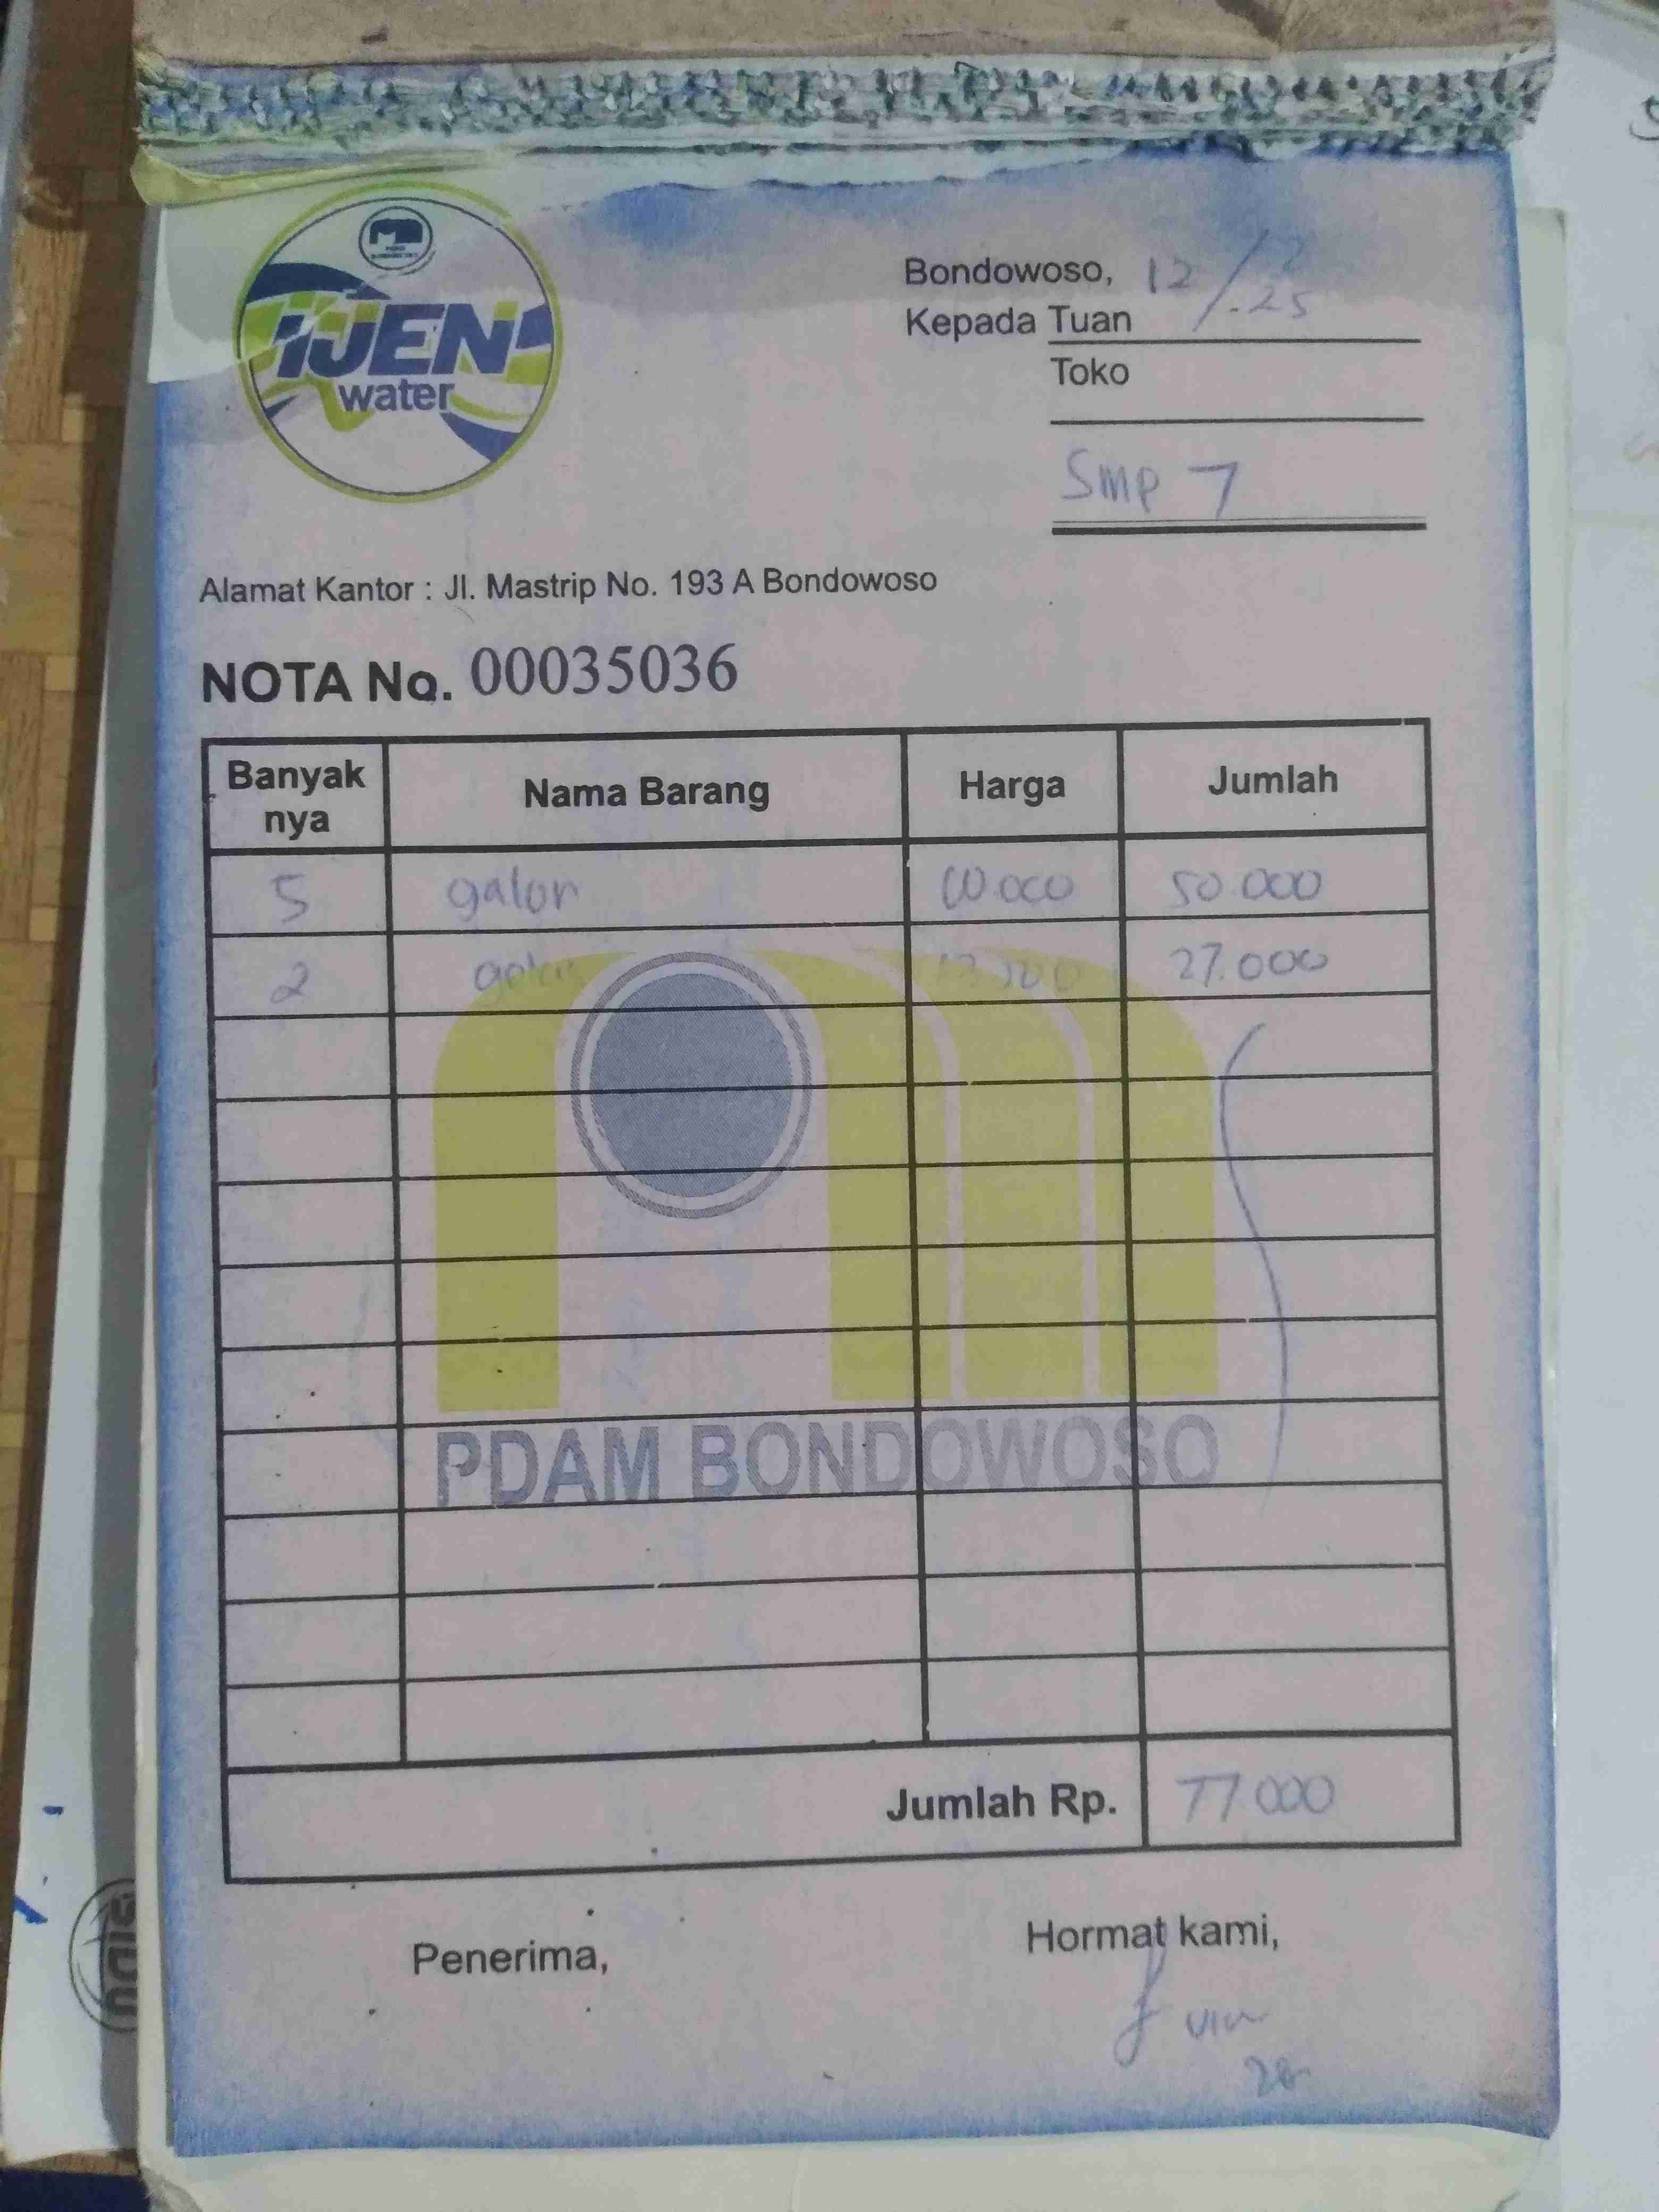 IJEN
water
Bondowoso, 12/2-25
Kepada Tuan
Toko
Smp 7
Alamat Kantor : Jl. Mastrip No. 193 A Bondowoso
NOTA No. 00035036
Banyak nya Nama Barang Harga Jumlah
5 galon 10.000 50.000
2 galon 13.500 27.000
PDAM BONDOWOSO
Jumlah Rp. 77.000
Penerima, Hormat kami,